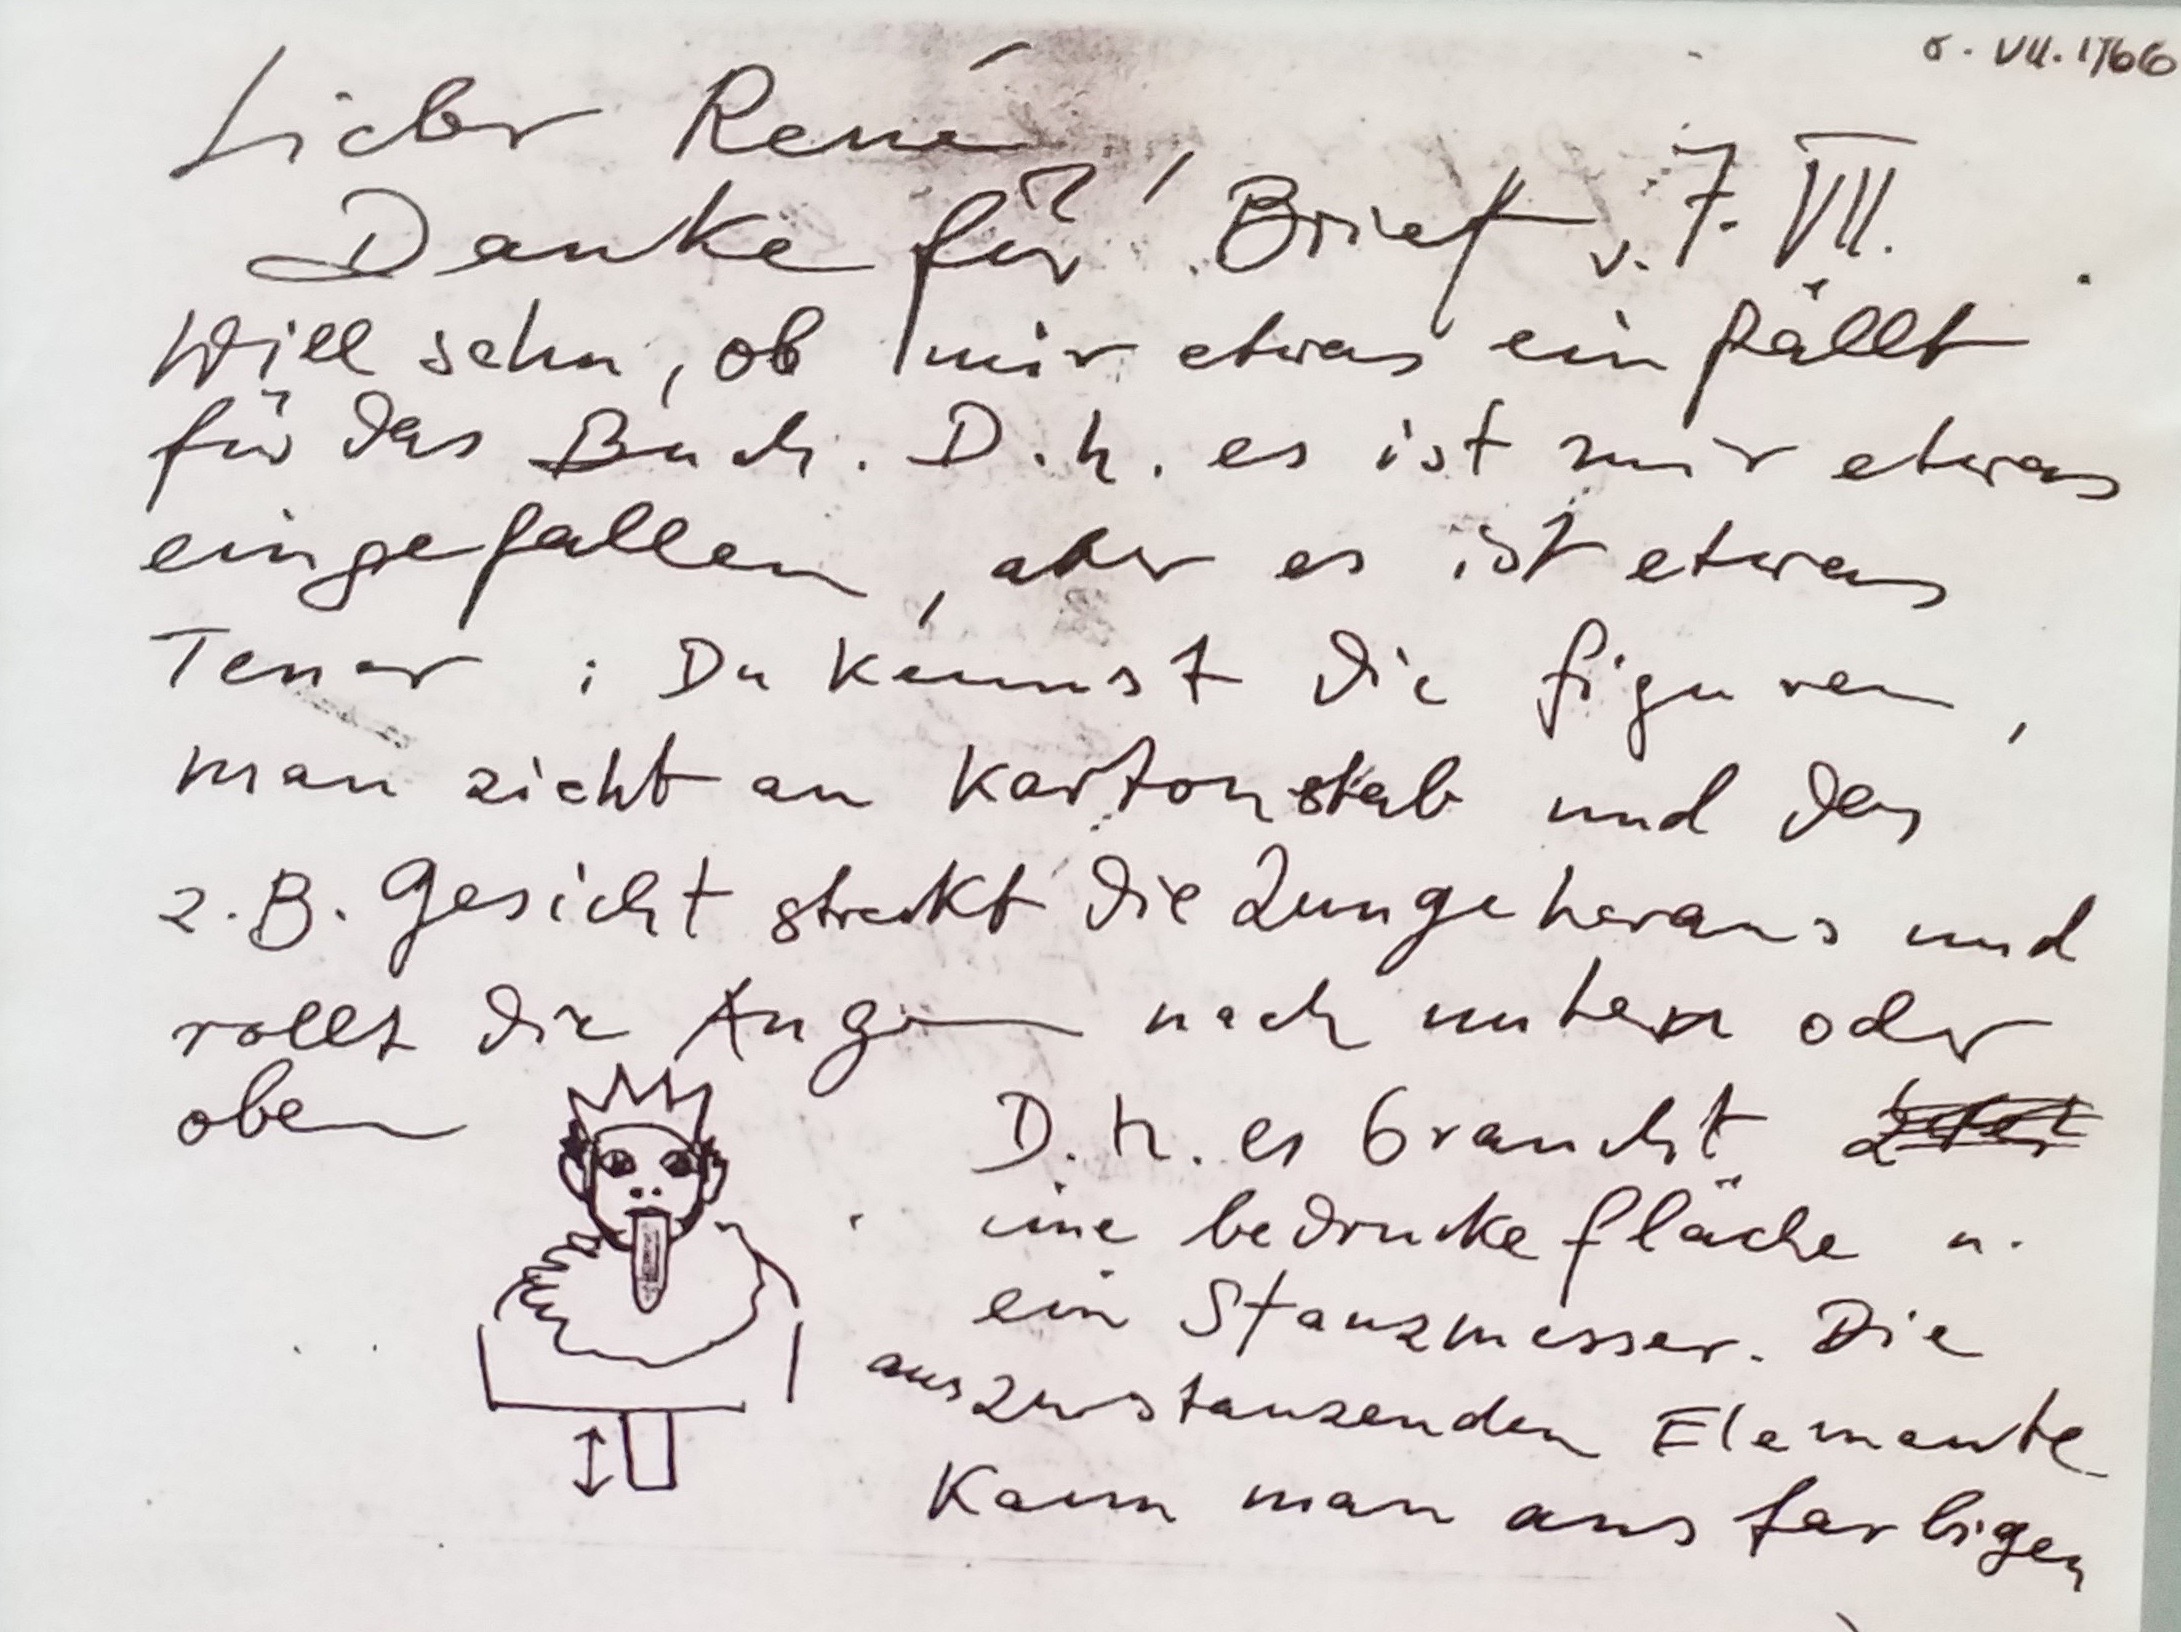 VII. 1966
Lieber René
Danke für Brief v. 7. VII.
Will sehn, ob mir etwas einfällt
für das Buch. D.h. es ist mir etwas
eingefallen, aber es ist etwas
Teuer: Du kennst die figuren,
man zieht an Kartonstab und das
z.B. Gesicht streckt die Zunge heraus und
rollt die Augen nach unten oder
oben
D.h. es braucht
eine bedruckte fläche u.
ein Stanzmesser. Die
auszustanzenden Elemente
Kann man aus farbigen